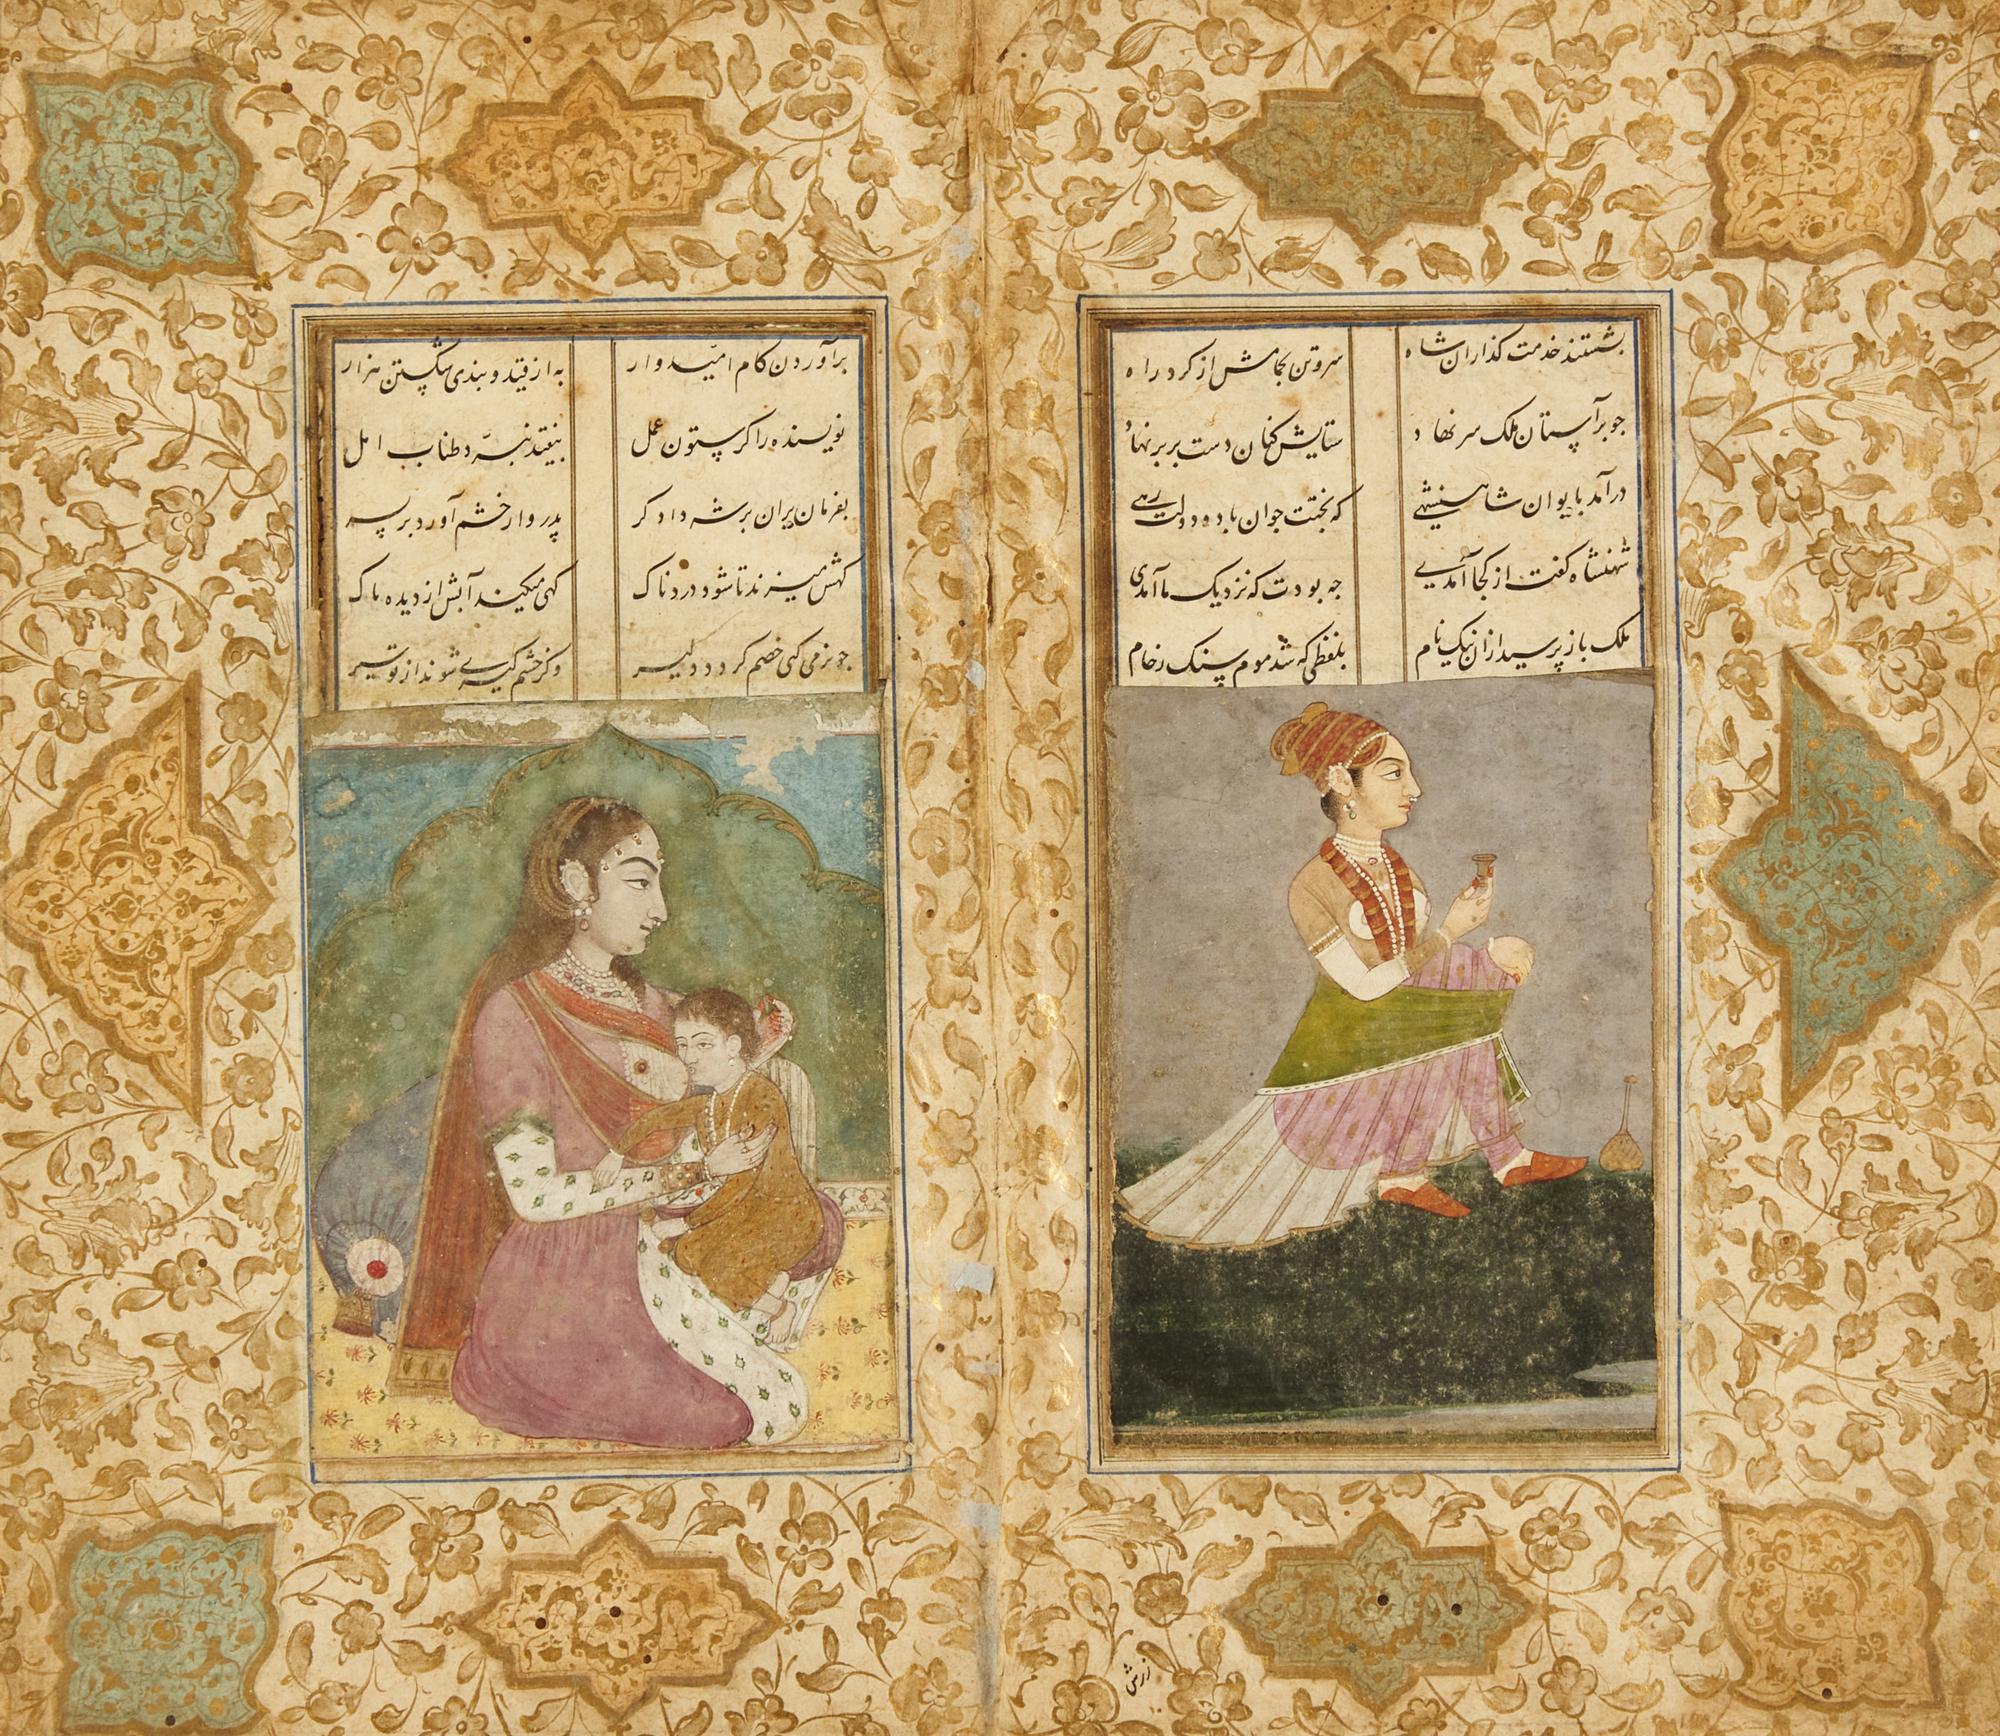 بشستند خدمت گذاران شاه سر و تن بحامش از گرد راه
چو بر آستان ملک سر نهاد ستایش کنان دست بر بر نهاد
درآمد بایوان شاهنشهی که بختت جوان باد و دولت رهی
شهنشاه گفت از کجا آمدی چه بودت که نزدیک ما آمدی
ملک باز پرسید ازان نیک نام بلفظی که شد موم سنگ رخام
برآوردن کام امیدوار به از قید و بندی شکستن هزار
نویسنده را گر ستون عمل بیفتد نبرّد طناب امل
بفرمان بران بر شه دادگر پدروار خشم آورد بر پسر
گهش میزند تا شود دردناک گهی میکند آبش از دیده پاک
چو نرمی کنی خصم گردد دلیر وگر خشم گیری شوند از تو سیر